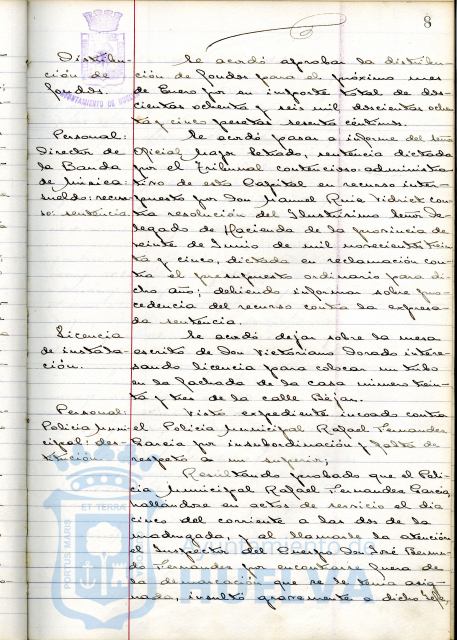 8
Distribu-
ción de
fondos.
Se acordó aprobar la distribu-
ción de fondos para el próximo mes
de Enero por su importe total de dos-
cientas ochenta y seis mil doscientas ochen
ta y cinco pesetas sesenta céntimos.
Personal:
Director de
la Banda
de Música:
sueldo: recur-
so: sentencia.
Se acordó pasar a informe del señor
Oficial Mayor letrado, sentencia dictada
por el Tribunal contencioso-administra-
tivo de esta Capital en recurso inter-
puesto por Don Manuel Ruiz Vidriet con-
tra resolución del Ilustrísimo Señor De-
legado de Hacienda de la provincia de
veinte de Junio de mil novecientos trein-
ta y cinco, dictada en reclamación con-
tra el presupuesto ordinario para di-
cho año; debiendo informar sobre pro-
cedencia del recurso contra la expresa-
da sentencia.
Licencia
de instala-
ción.
Se acordó dejar sobre la mesa
escrito de Don Victoriano Dorado intere-
sando licencia para colocar un tubo
en la fachada de la casa número trein-
ta y tres de la calle Béjar.
Personal:
Policía Muni-
cipal: des-
titución.
Visto expediente incoado contra
el Policía Municipal Rafael Fernández
García por insubordinación y falta de
respeto a un superior;
Resultando probado que el Poli-
cía Municipal Rafael Fernández García,
hallándose en actos de servicio el día
cinco del corriente a las dos de la
madrugada y al llamarle la atención
el Inspector del Cuerpo Don José Bermu-
do Fernández por encontrarse fuera de
la demarcación que se le tenía asig-
nada, insultó gravemente a dicho Jefe,
AYUNTAMIENTO DE HUELVA
PORTUS MARIS
ET TERRAE
Ayuntamiento de
HUELVA